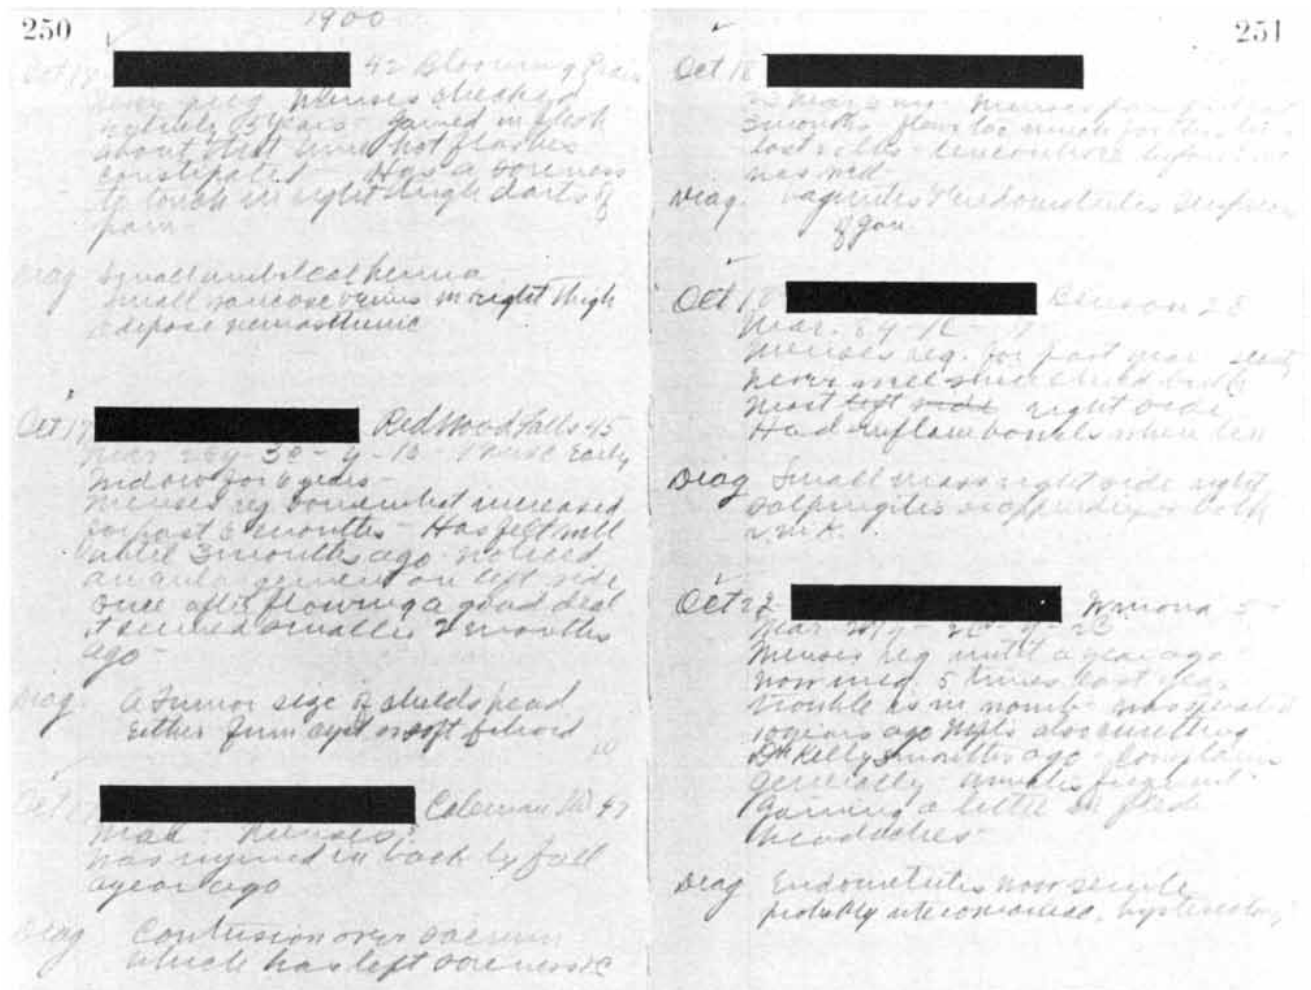 250
1900
Oct 18 42 Blooming Prair
never preg Menses checked
entirely 5 years - gained in flesh
about that time hot flashes
constipated - Has a soreness
to touch in right thigh darts of
pain
Diag Small umbilical hernia
small varicose veins in right thigh
adipose neurasthenic
Oct 17 Red Wood Falls 45
Mar 26y - 3c - y - 16 - 1 misc early
Widow for 6 years -
Menses reg somewhat increased
for past 6 months - Has felt well
until 3 months ago noticed
an enlargement on left side
once after flowing a good deal
it seemed smaller 2 months
ago -
Diag A Tumor size of childs head
either firm cyst or soft fibroid
Oct Coleman 47
Mar - Menses?
was injured in back by fall
a year ago
Diag Contusion over sacrum
which has left soreness &c
251
Oct 18
Menses
3 months - flows too much for this
lost
was med
Diag. Vaginitis Endometritis
of gon
Oct 18 Benson 28
Mar. 6y - 1c - y
Menses reg. for past year
never well since child birth
most left side right side
Had inflam bowels when ten
Diag Small mass right side right
salpingitis or appendix or both
Oct 22 Winona 5
Mar
Menses reg until a year ago
now 5 times past year
trouble is in womb - was operated
10 years ago Mpls also curetting
Dr Kelly 3 months ago - Complains
generally - urinates frequent
gaining a little in flesh
headaches
Diag Endometritis now senile
probably hysterectomy